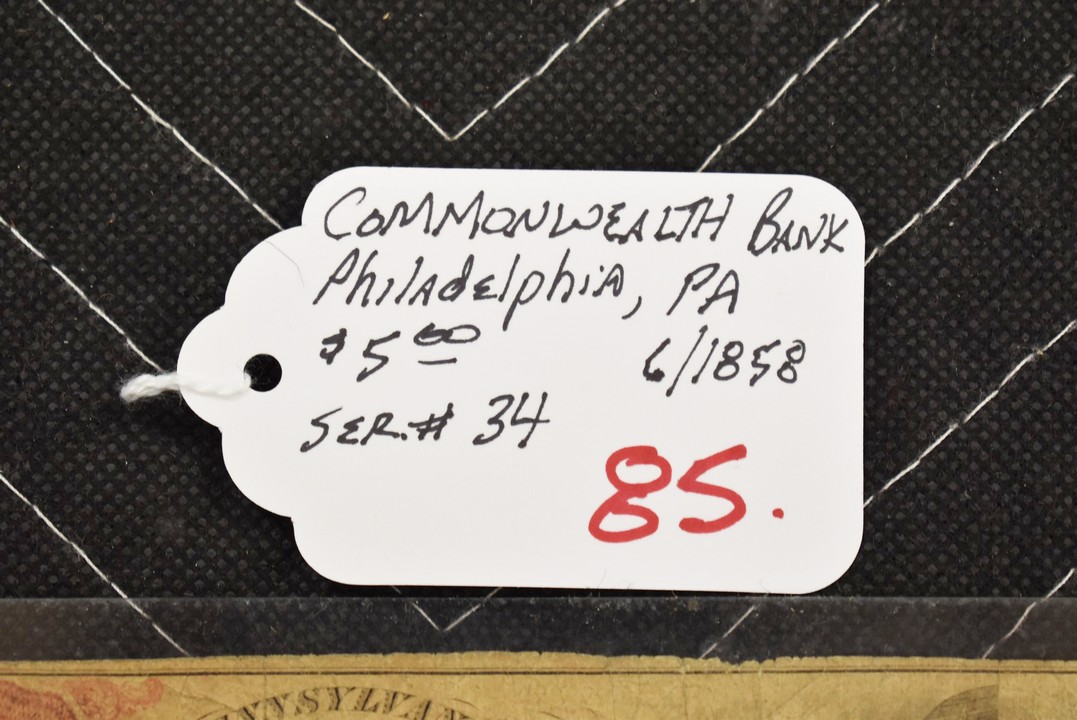 COMMONWEALTH BANK
Philadelphia, PA
$5.00 6/1858
SER.# 34
85.
NNSYLVAN